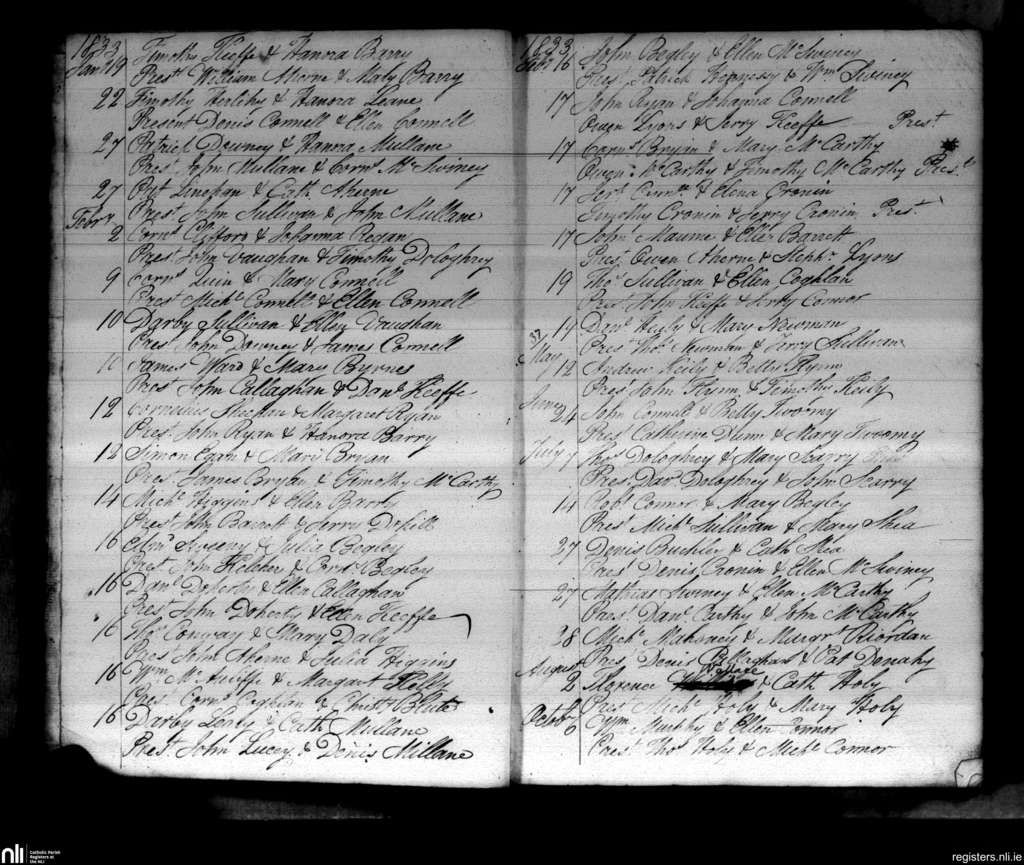 1833 Timothy Keeffe & Hanora Barry
Jany 19 Prest William Aherne & Maty Barry
22 Timothy Herlihy & Hanora Leane
Present Denis Connell & Ellen Connell
27 Patrick Downey & Hanora Mullane
Prest John Mullane & Corns McSwiney
27 Pat Linehan & Cath Aherne
Prest John Sullivan & John Mullane
Febry
2 Corns Clifford & Johanna Regan
Prest John Vaughan & Timothy Deloghrey
9 Corns Quin & Mary Connell
Prest Michl Connell & Ellen Connell
10 Darby Sullivan & Ellen Vaughan
Prest John Downey & James Connell
10 James Ward & Mary Byrnes
Prest John Callaghan & Danl Keeffe
12 Cornelius Sheehan & Margaret Ryan
Prest John Ryan & Hanora Barry
12 Simon Egan & Mary Bryan
Prest James Bryan & Timothy McCarthy
14 Michl Higgins & Ellen Barry
Prest John Barrett & Jerry
16 Edmd Sweeny & Julia Begley
Prest John Keleher & Corns Begley
16 Danl Doherty & Ellen Callaghan
Prest John Doherty & Ellen Keeffe
16 Thos Conway & Mary Daly
Prest John Aherne & Julia Higgins
16 Wm McAuliffe & Margaret Kelly
Prest Corns Coghlan &
16 Darby Leahy & Cath Mullane
Prest John Lucey & Denis Mullane
1833 John Begley & Ellen McSwiney
Feby 16 Prest Patrick Hennessy & Wm Swiney
17 John Ryan & Johanna Connell
Owen Lyons & Jerry Keeffe Prest
17 Corns Bryan & Mary McCarthy
Owen McCarthy & Timothy McCarthy Prest
17 Jery & Elena Cronin
Timothy Cronin & Jerry Cronin Prest
17 John Maume & Ellen Barrett
Prest Owen Aherne & Stephn Lyons
19 Thos Sullivan & Ellen Coghlan
Prest John Keeffe & Jerry Connor
19 Danl & Mary Newman
Prest Thos Newman & Jerry Sullivan
May
12 Andrew Keily & Betty Flynn
Prest John Flynn & Timothy Keily
June
24 John Connell & Betty Twoomy
Prest Catherine Dunn & Mary Twoomy
July 7 Thos Deloghrey & Mary Scarry
Prest Danl Deloghrey & John Scarry
14 Robt Connor & Mary Begley
Prest Michl Sullivan & Mary Shea
27 Denis Buckley & Cath Shea
Prest Denis Cronin & Ellen McSwiney
27 Mathias Swiney & Ellen McCarthy
Prest Danl Carthy & John McCarthy
28 Michl Mahoney & Margrt Riordan
Prest Denis Callaghan & Pat Donahy
August
2 Florence Wallace & Cath Holy
Prest Michl Holy & Mary Holy
Octobr
6 Wm Murphy & Ellen Connor
Prest Thos Holy & Michl Connor
nli Catholic Parish
Registers at
the NLI
registers.nli.ie